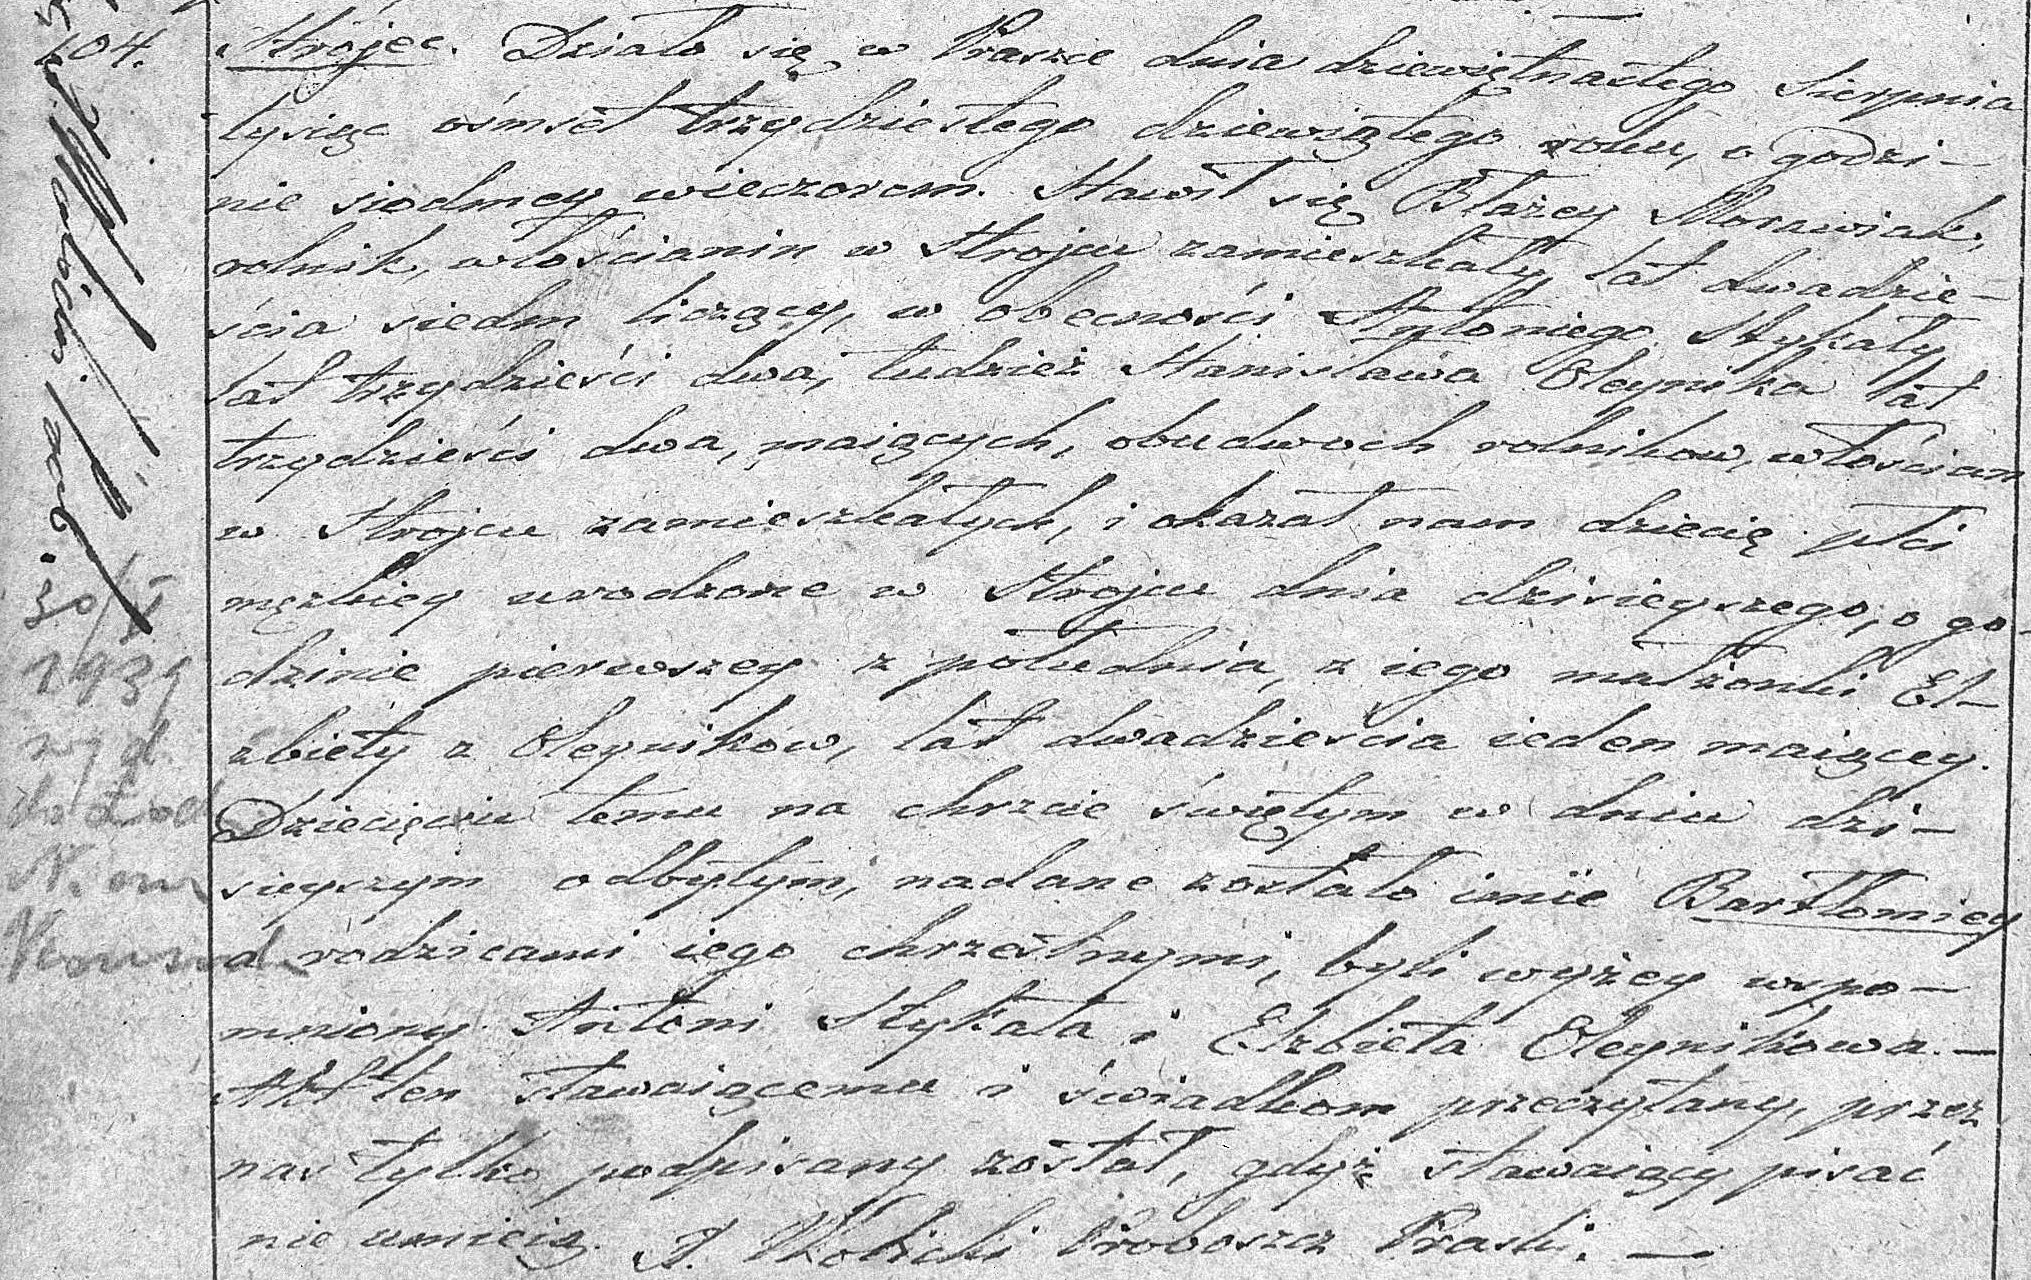 104.
Strojec. Działo się w Praszce dnia dziewiętnastego Sierpnia
tysiąc ośmset trzydziestego dziewiątego roku, o godzi-
nie siodmey wieczorem. Stawił się Błażey Morawiak,
rolnik, włościanin w Strojcu zamieszkały lat dwadzie-
ścia siedm liczący, w obecności Antoniego Stykały
lat trzydzieści dwa, tudzież Stanisława Oleynika lat
trzydzieści dwa, maiących, obudwoch rolnikow, włościan
w Strojcu zamieszkałych, i okazał nam dziecię płci
męzkiey urodzone w Strojcu dnia dzisieyszego, o go-
dzinie pierwszey z południa, z iego małżonki El-
żbiety z Oleynikow, lat dwadzieścia ieden maiącey.
Dziecięciu temu na chrzcie świętym w dniu dzi-
sieyszym odbytym, nadane zostało imie Bartłomiey
a rodzicami iego chrzestnymi, byli wyżey wspo-
mniony Antoni Stykała i Elżbieta Oleynikowa. —
Akt ten stawaiącemu i świadkom przeczytany, przez
nas tylko podpisany został, gdyż stawaiący pisać
nie umieią. Proboszcz Praszki. —
30/X
1939
wyd.